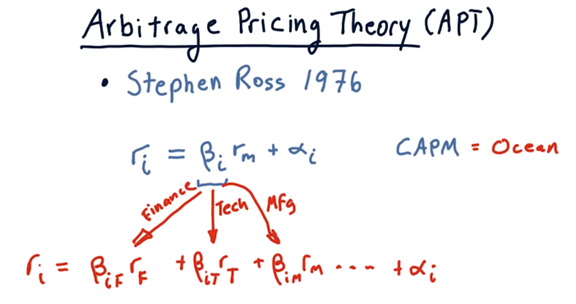 Arbitrage Pricing Theory (APT)
• Stephen Ross 1976
rᵢ = βᵢ rₘ + αᵢ
CAPM = Ocean
Finance
Tech
Mfg
rᵢ = β_iF r_F + β_iT r_T + β_iM r_M ---- + αᵢ